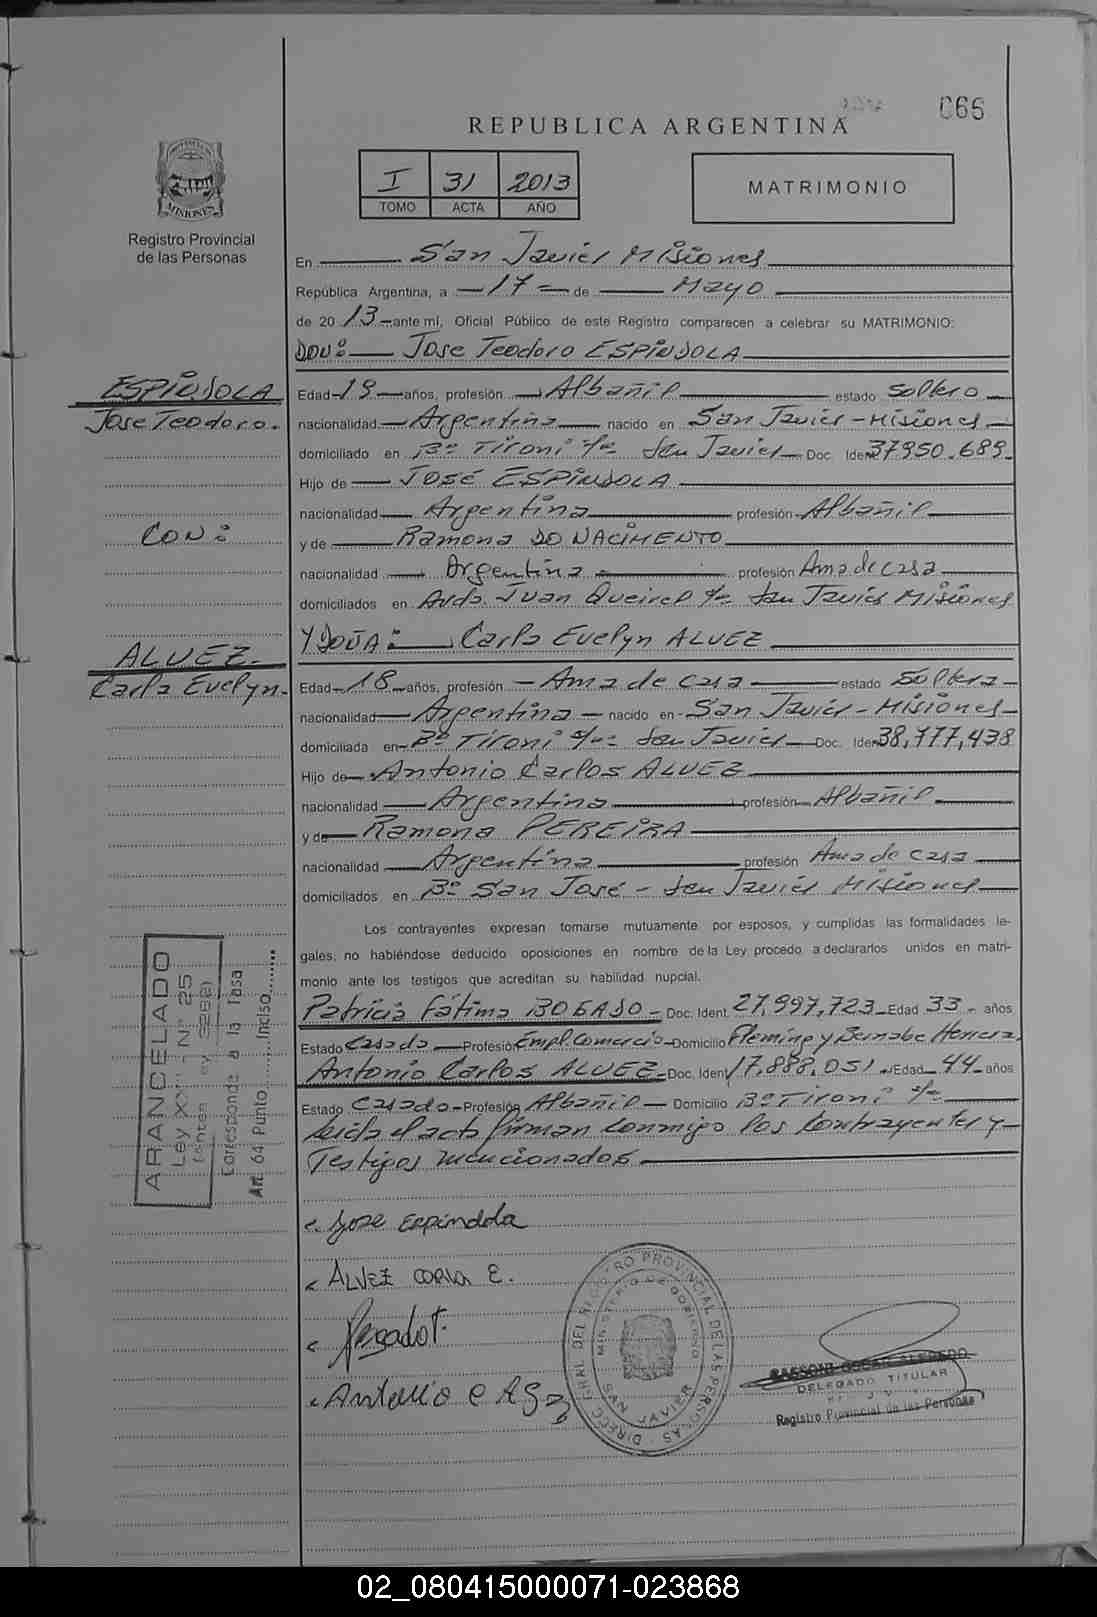 066
REPUBLICA ARGENTINA
I 31 2013
TOMO ACTA AÑO
MATRIMONIO
MISIONES
Registro Provincial
de las Personas
En San Javier Misiones
República Argentina, a -17- de Mayo
de 20 13 ante mí, Oficial Público de este Registro comparecen a celebrar su MATRIMONIO:
DON: Jose Teodoro ESPINDOLA
ESPINDOLA
Jose Teodoro.
CON:
ALVEZ.
Carla Evelyn.
Edad 19 años, profesión Albañil estado Soltero
nacionalidad Argentina nacido en San Javier - Misiones
domiciliado en Bº Tironi s/nº San Javier Doc. Iden 37950.689.
Hijo de JOSÉ ESPINDOLA
nacionalidad Argentina profesión Albañil
y de Ramona DO NACIMENTO
nacionalidad Argentina profesión Ama de casa
domiciliados en Avda. Juan Queirel s/n San Javier Misiones
Y DOÑA: Carla Evelyn ALVEZ
Edad 18 años, profesión Ama de casa estado Soltera
nacionalidad Argentina nacido en San Javier - Misiones
domiciliada en Bº Tironi s/nº San Javier Doc. Iden 38,777,438
Hijo de Antonio Carlos ALVEZ
nacionalidad Argentina profesión Albañil
y de Ramona PEREIRA
nacionalidad Argentina profesión Ama de casa
domiciliados en Bº San José - San Javier Misiones
Los contrayentes expresan tomarse mutuamente por esposos, y cumplidas las formalidades le-
gales, no habiéndose deducido oposiciones en nombre de la Ley procedo a declararlos unidos en matri-
monio ante los testigos que acreditan su habilidad nupcial.
Patricia Fátima BOGADO - Doc. Ident. 27,997,723 Edad 33 - años
Estado Casada Profesión Empl. Comercio Domicilio Fleming y Bernabe Herrera.
Antonio Carlos ALVEZ Doc. Ident 17,888,051 Edad 44 años
Estado Casado Profesión Albañil Domicilio Bº Tironi s/n
Leida el acta firman conmigo los contrayentes y
Testigos mencionados
ARANCELADO
Ley XXII Nº 25
Corresponde a la Tasa
Art. 64 Punto Inciso
Jose Espindola
ALVEZ CARLA E.
Antonio C
DIRECC. GRAL. DEL REGISTRO PROVINCIAL DE LAS PERSONAS
MINISTERIO DE GOBIERNO
SAN JAVIER
SASSONI OSCAR ALFREDO
DELEGADO TITULAR
Registro Provincial de las Personas
02_080415000071-023868